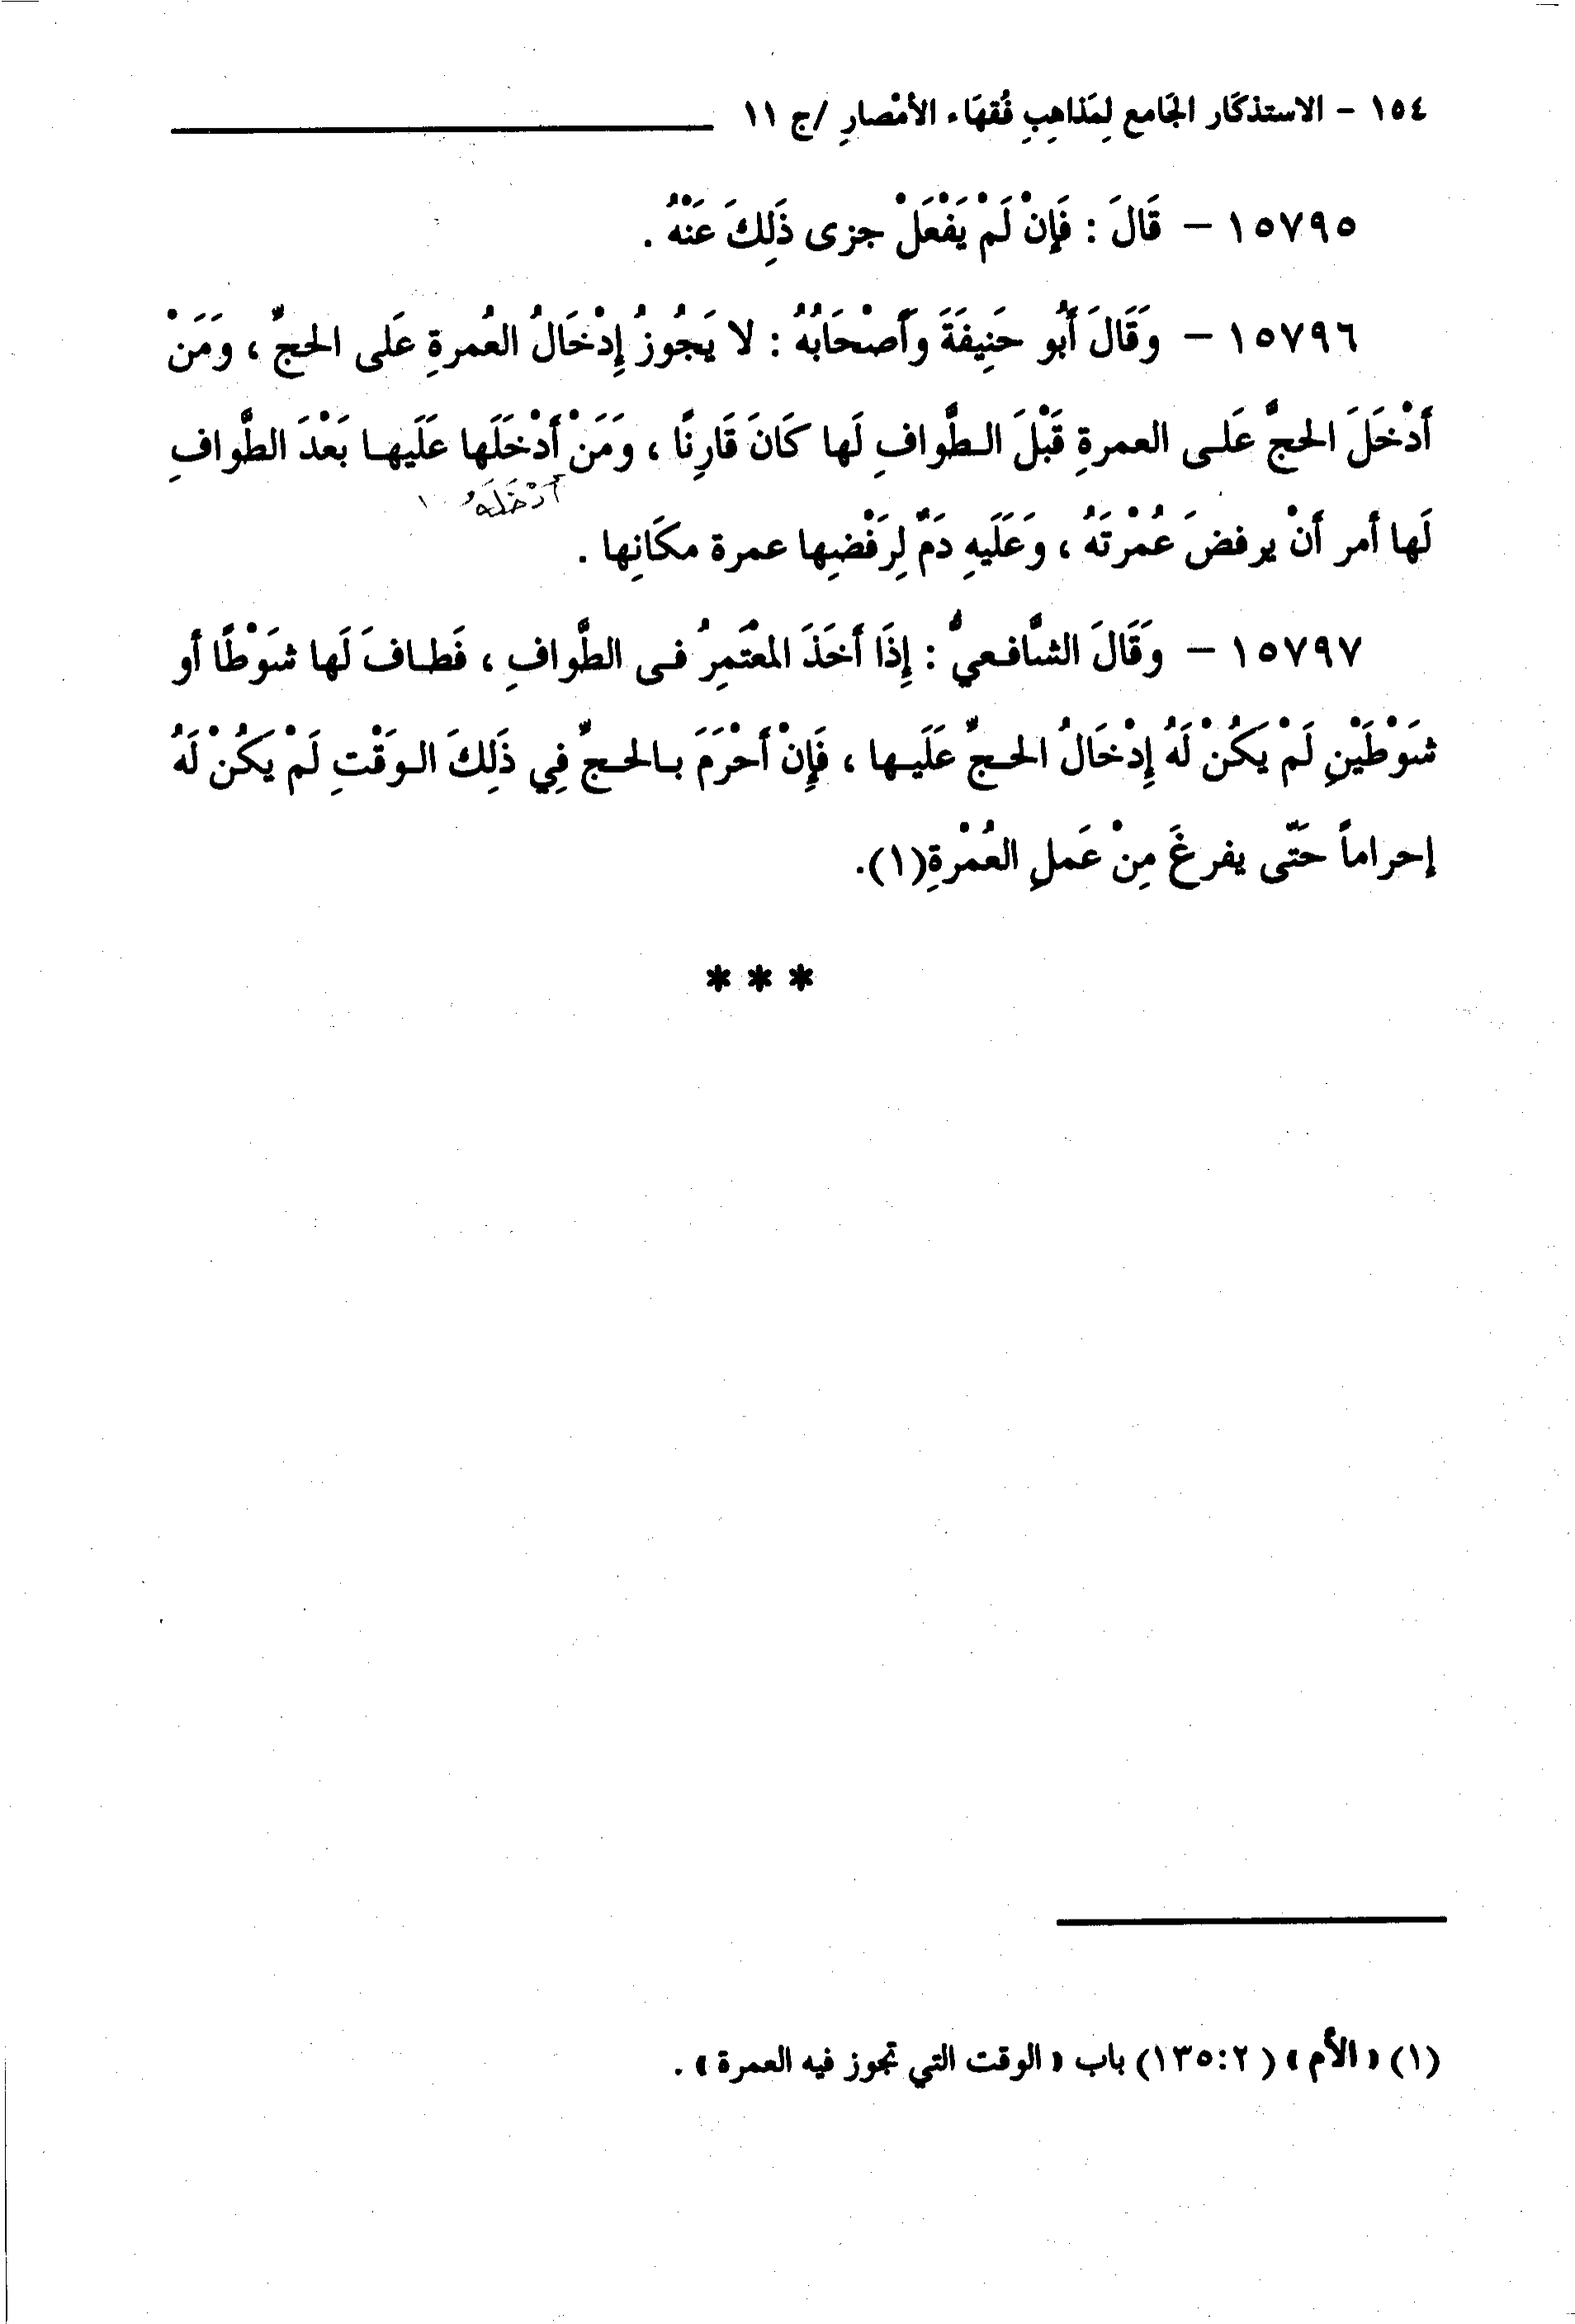 ١٥٤ - الاستذكَار الجَامع لِمَذاهِبِ فُقهَاء الأمْصارِ /ج ١١
١٥٧٩٥ - قَالَ : فَإِنْ لَمْ يَفْعَلْ جزى ذَلِكَ عَنْهُ .
١٥٧٩٦ - وَقَالَ أَبُو حَنِيفَةَ وَأَصْحَابُهُ : لا يَجُوزُ إِدْخَالُ العُمرةِ عَلى الحجِّ ، ومَنْ
أَدْخَلَ الحجَّ عَلـى العمرةِ قَبْلَ الـطَّوافِ لَها كَانَ قَارِنًا ، ومَنْ أَدْخَلَها عَلَيهـا بَعْدَ الطَّوافِ
أَدْخَلَهُ
لَها أمر أَنْ يرفضَ عُمْرتَهُ ، وَعَلَيهِ دَمٌ لِرَفْضِها عمرة مكَانِها .
١٥٧٩٧ - وَقَالَ الشَّافـعيُّ : إِذَا أَخَذَ المُعْتَمِرُ فـى الطَّوافِ ، فَطـافَ لَها شَوْطًا أو
شَوْطَيْنِ لَمْ يَكُنْ لَهُ إِدْخَالُ الحـجِّ عَلَيـها ، فَإِنْ أَحْرَمَ بـالحـجِّ فِي ذَلِكَ الـوَقْتِ لَمْ يَكُنْ لَهُ
إحراماً حَتّى يفرغَ مِنْ عَملِ العُمْرةِ(١).
* * *
(١) « الأم » ( ٢:١٣٥) باب « الوقت التي تجوز فيه العمرة » .